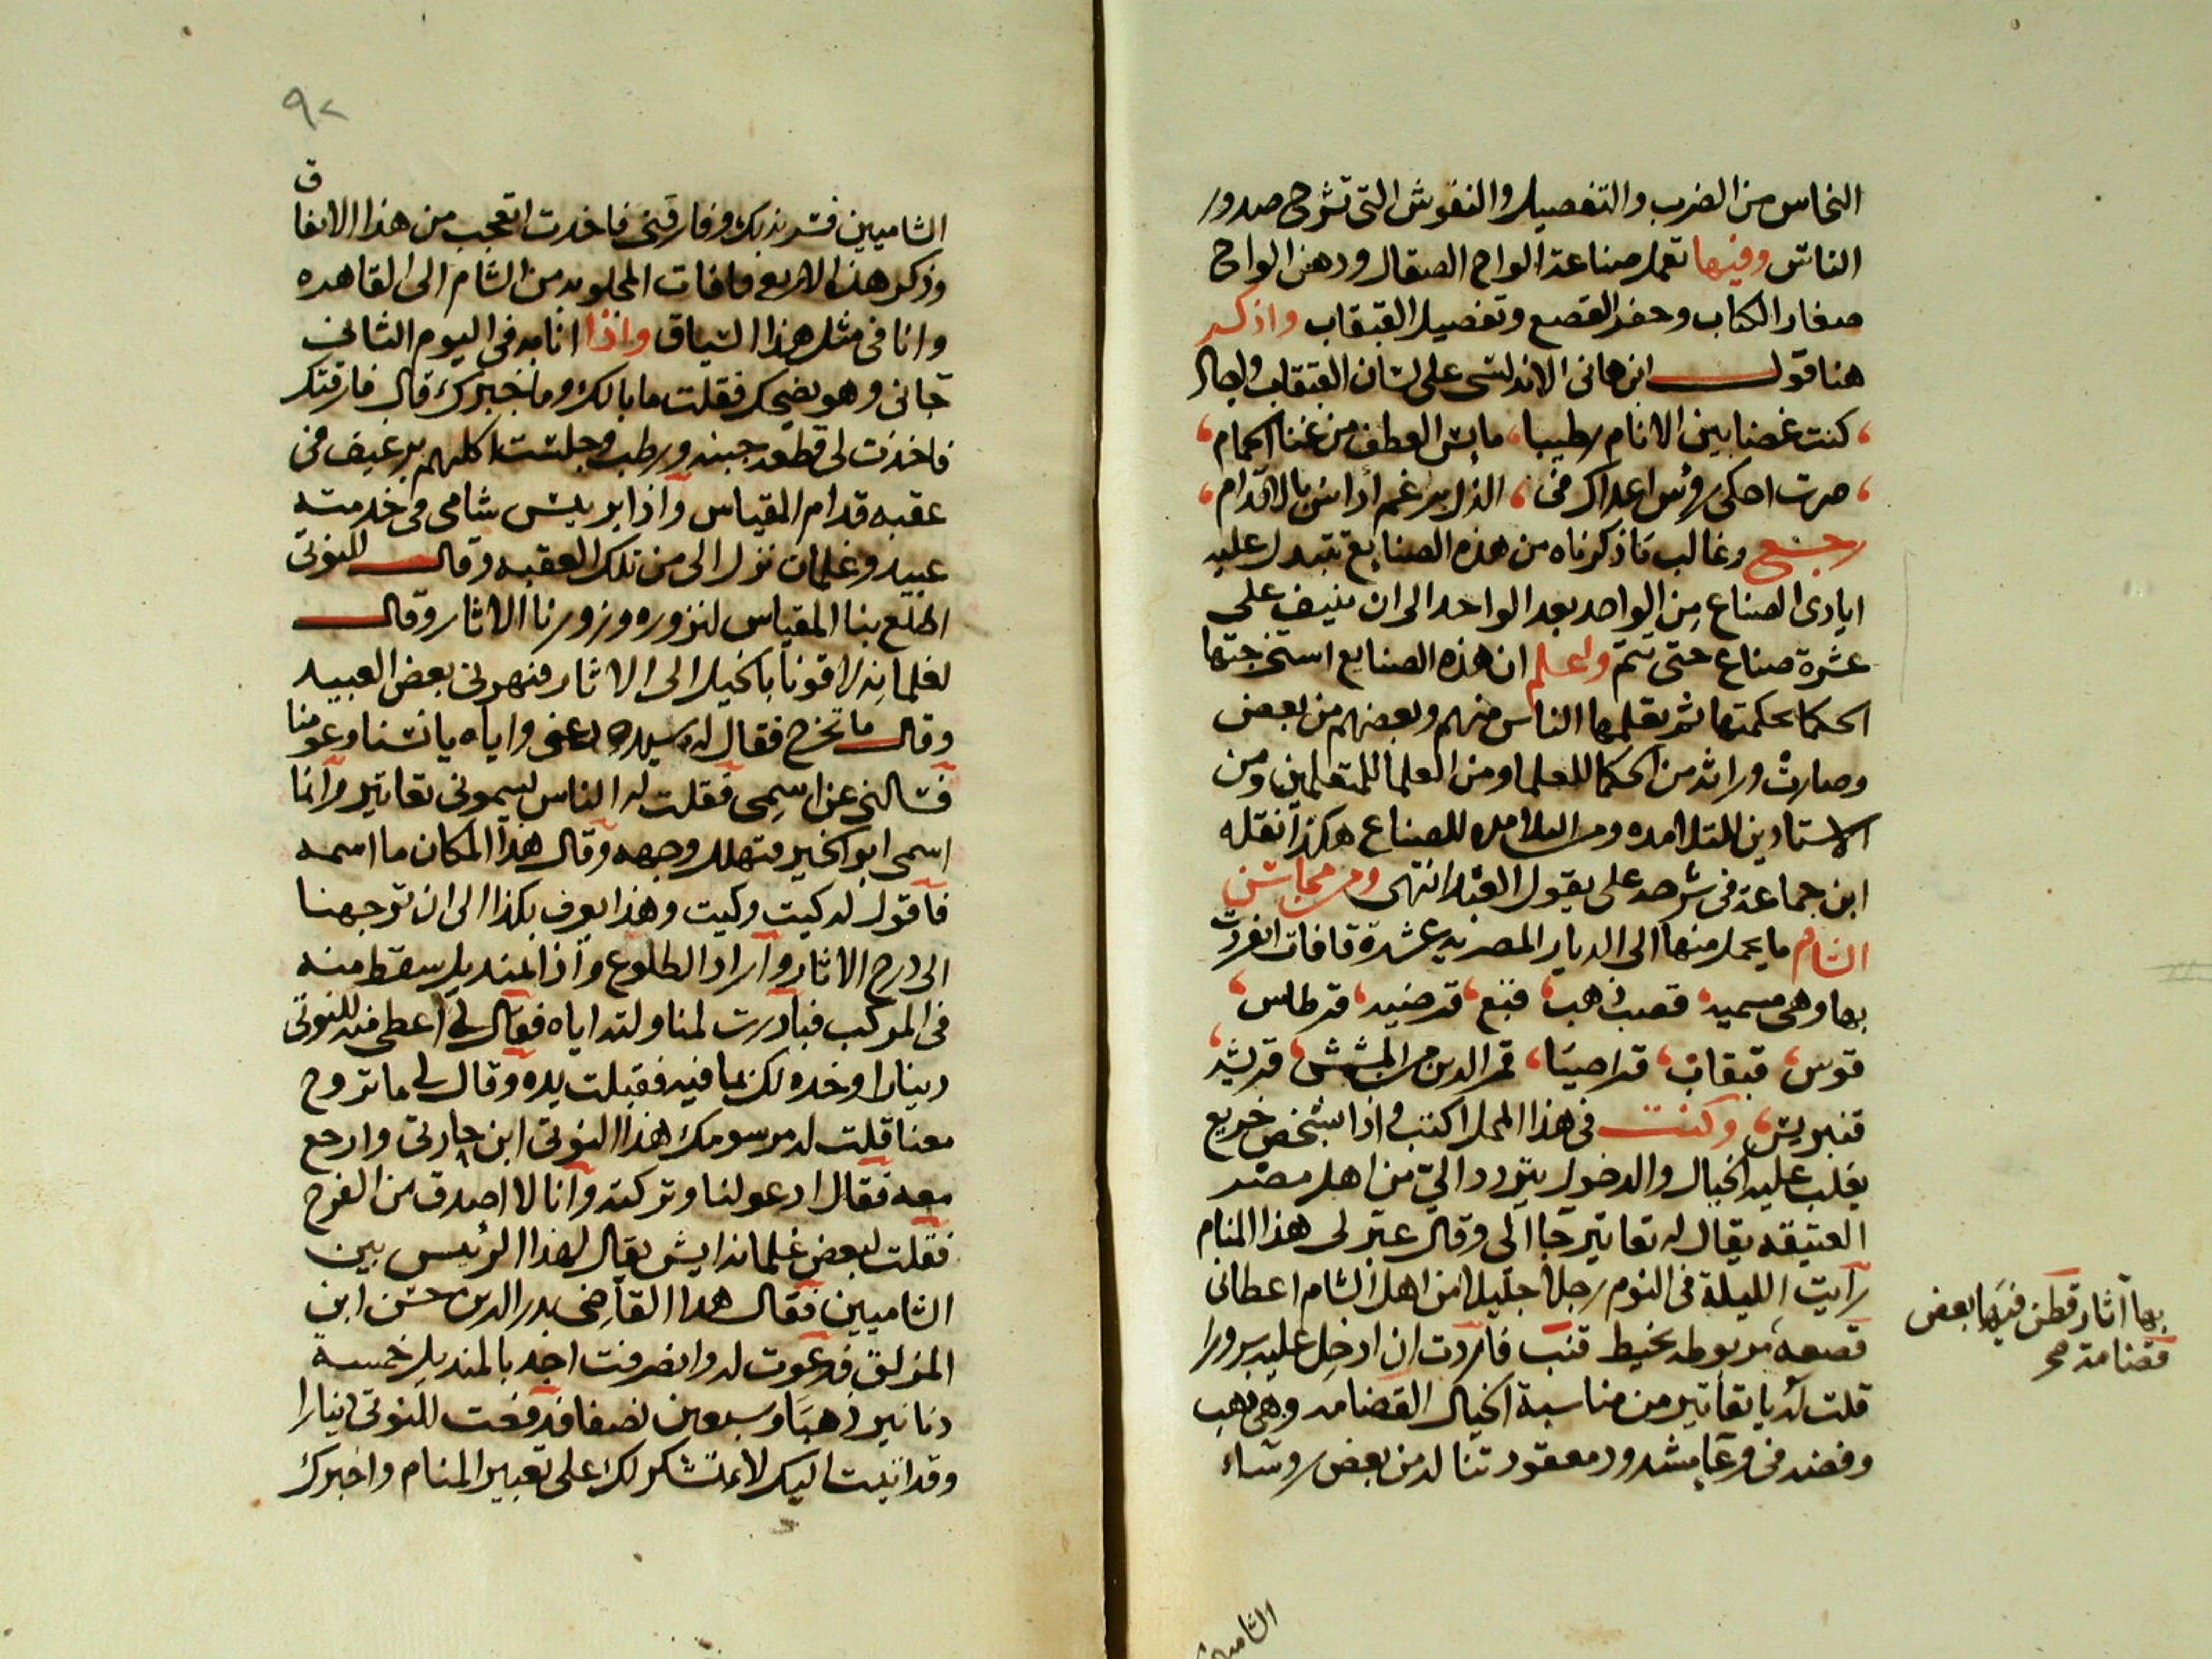 النحاس من الضرب والتفصيل والنقوش التى تشرح صدور
الناس وفيها تعمل صناعة الواح الصقال ودهن الواح
صغار الكتاب وحفر القصع وتفصيل القبقاب واذكر
هنا قول ابن هانى الاندلسى على لسان القبقاب واجاد
كنت غصنا بين الانام رطيبا، مايس العطف من غنا الحمام
صرت احكى رؤس اعداك فى، الذل برغم أداس بالاقدام
رجع وغالب ما ذكرناه من هذه الصنايع تتبدل عليه
ايادى الصناع من الواحد بعد الواحد الى ان ينيف على
عشرة صناع حتى تتم واعلم ان هذه الصنايع استخرجتها
الحكما بحكمتها ثم تعلمها الناس منهم وبعضهم من بعض
وصارت وراثه من الحكما للعلما ومن العلما للمتعلمين ومن
الاستادين للتلامده ومن التلامده للصناع هكذا نقله
ابن جماعة فى شرحه على يقول العبد انتهى ومن محاسن
الشام ما يحمل منها الى الديار المصريه عشرة قافات انفردت
بها وهى مسميه، قصب ذهب، قبع، قرضيه، قرطاس،
قوس، قبقاب، قراصيا، قمر الدين من المشمش، قريشه،
قنبريس، وكنت فى هذا المحل اكتب واذا بشخص خريع
يغلب عليه الخيال والدخول يتردد الى من اهل مصر
العتيقه يقال له تعاتير جا الى وقال عبر لى هذا المنام
رايت الليلة فى النوم رجلا جليلا من اهل الشام اعطانى
قصعه مربوطه بخيط قنب فاردت ان ادخل عليه سرورا
قلت له يا تعاتير من مناسبة الخيال القضامه وهى ذهب
وفضه فى وعا مشدود معقود تناله من بعض روساء
بها آثار قطن فيها بعض
قضامة صح
الشاميين
٩٢
الشاميين فسر بذلك وفارقنى فاخدت اتعجب من هذا الاتفاق
وذكر هذه الاربع قافات المجلوبه من الشام الى القاهره
وانا فى مثل هذا السياق واذا انا به فى اليوم الثانى
جانى وهو يضحك فقلت ما بالك وما خبرك قال فارقتك
فاخذت لى قطعه جبنه ورطب وجلست اكلهم برغيف فى
عقبه قدام المقياس واذا بريس شامى فى خدمته
عبيد وغلمان نزل الى من تلك العقبه وقال للنوتى
اطلع بنا المقياس لنزوره وزورنا الاثار وقال
لغلمانه لاقونا بالخيل الى الاثار فنهرنى بعض العبيد
وقال ما تخرج فقال له سيده دعنى واياه يانسنا وعومنا
فسالنى عن اسمى فقلت له الناس يسمونى تعاتير وانا
اسمى ابو الخير فتهلل وجهه وقال هذا المكان ما اسمه
فاقول له كيت وكيت وهذا يعرف بكذا الى ان توجهنا
الى درج الاثار واراد الطلوع واذا المنديل سقط منه
فى المركب فبادرت لمناولته اياه فقال لى اعطى منه للنوتى
دينارا وخده لك بما فيه فقبلت يده وقال لى ما تروح
معنا قلت له مرسومك هذا النوتى ابن حارتى وارجع
معه فقال ادعو لنا وتركته وانا لا اصدق من الفرح
فقلت لبعض غلمانه ايش يقال لهذا الرئيس بين
الشاميين فقال هذا القاضى بدر الدين حسن ابن
المزلق فدعوت له وانصرفت اجد بالمنديل خمسة
دنانير ذهبا وسبعين نصفا فدفعت للنوتى دينارا
وقد اتيت اليك لاتشكر لك على تعبير المنام واخبرك